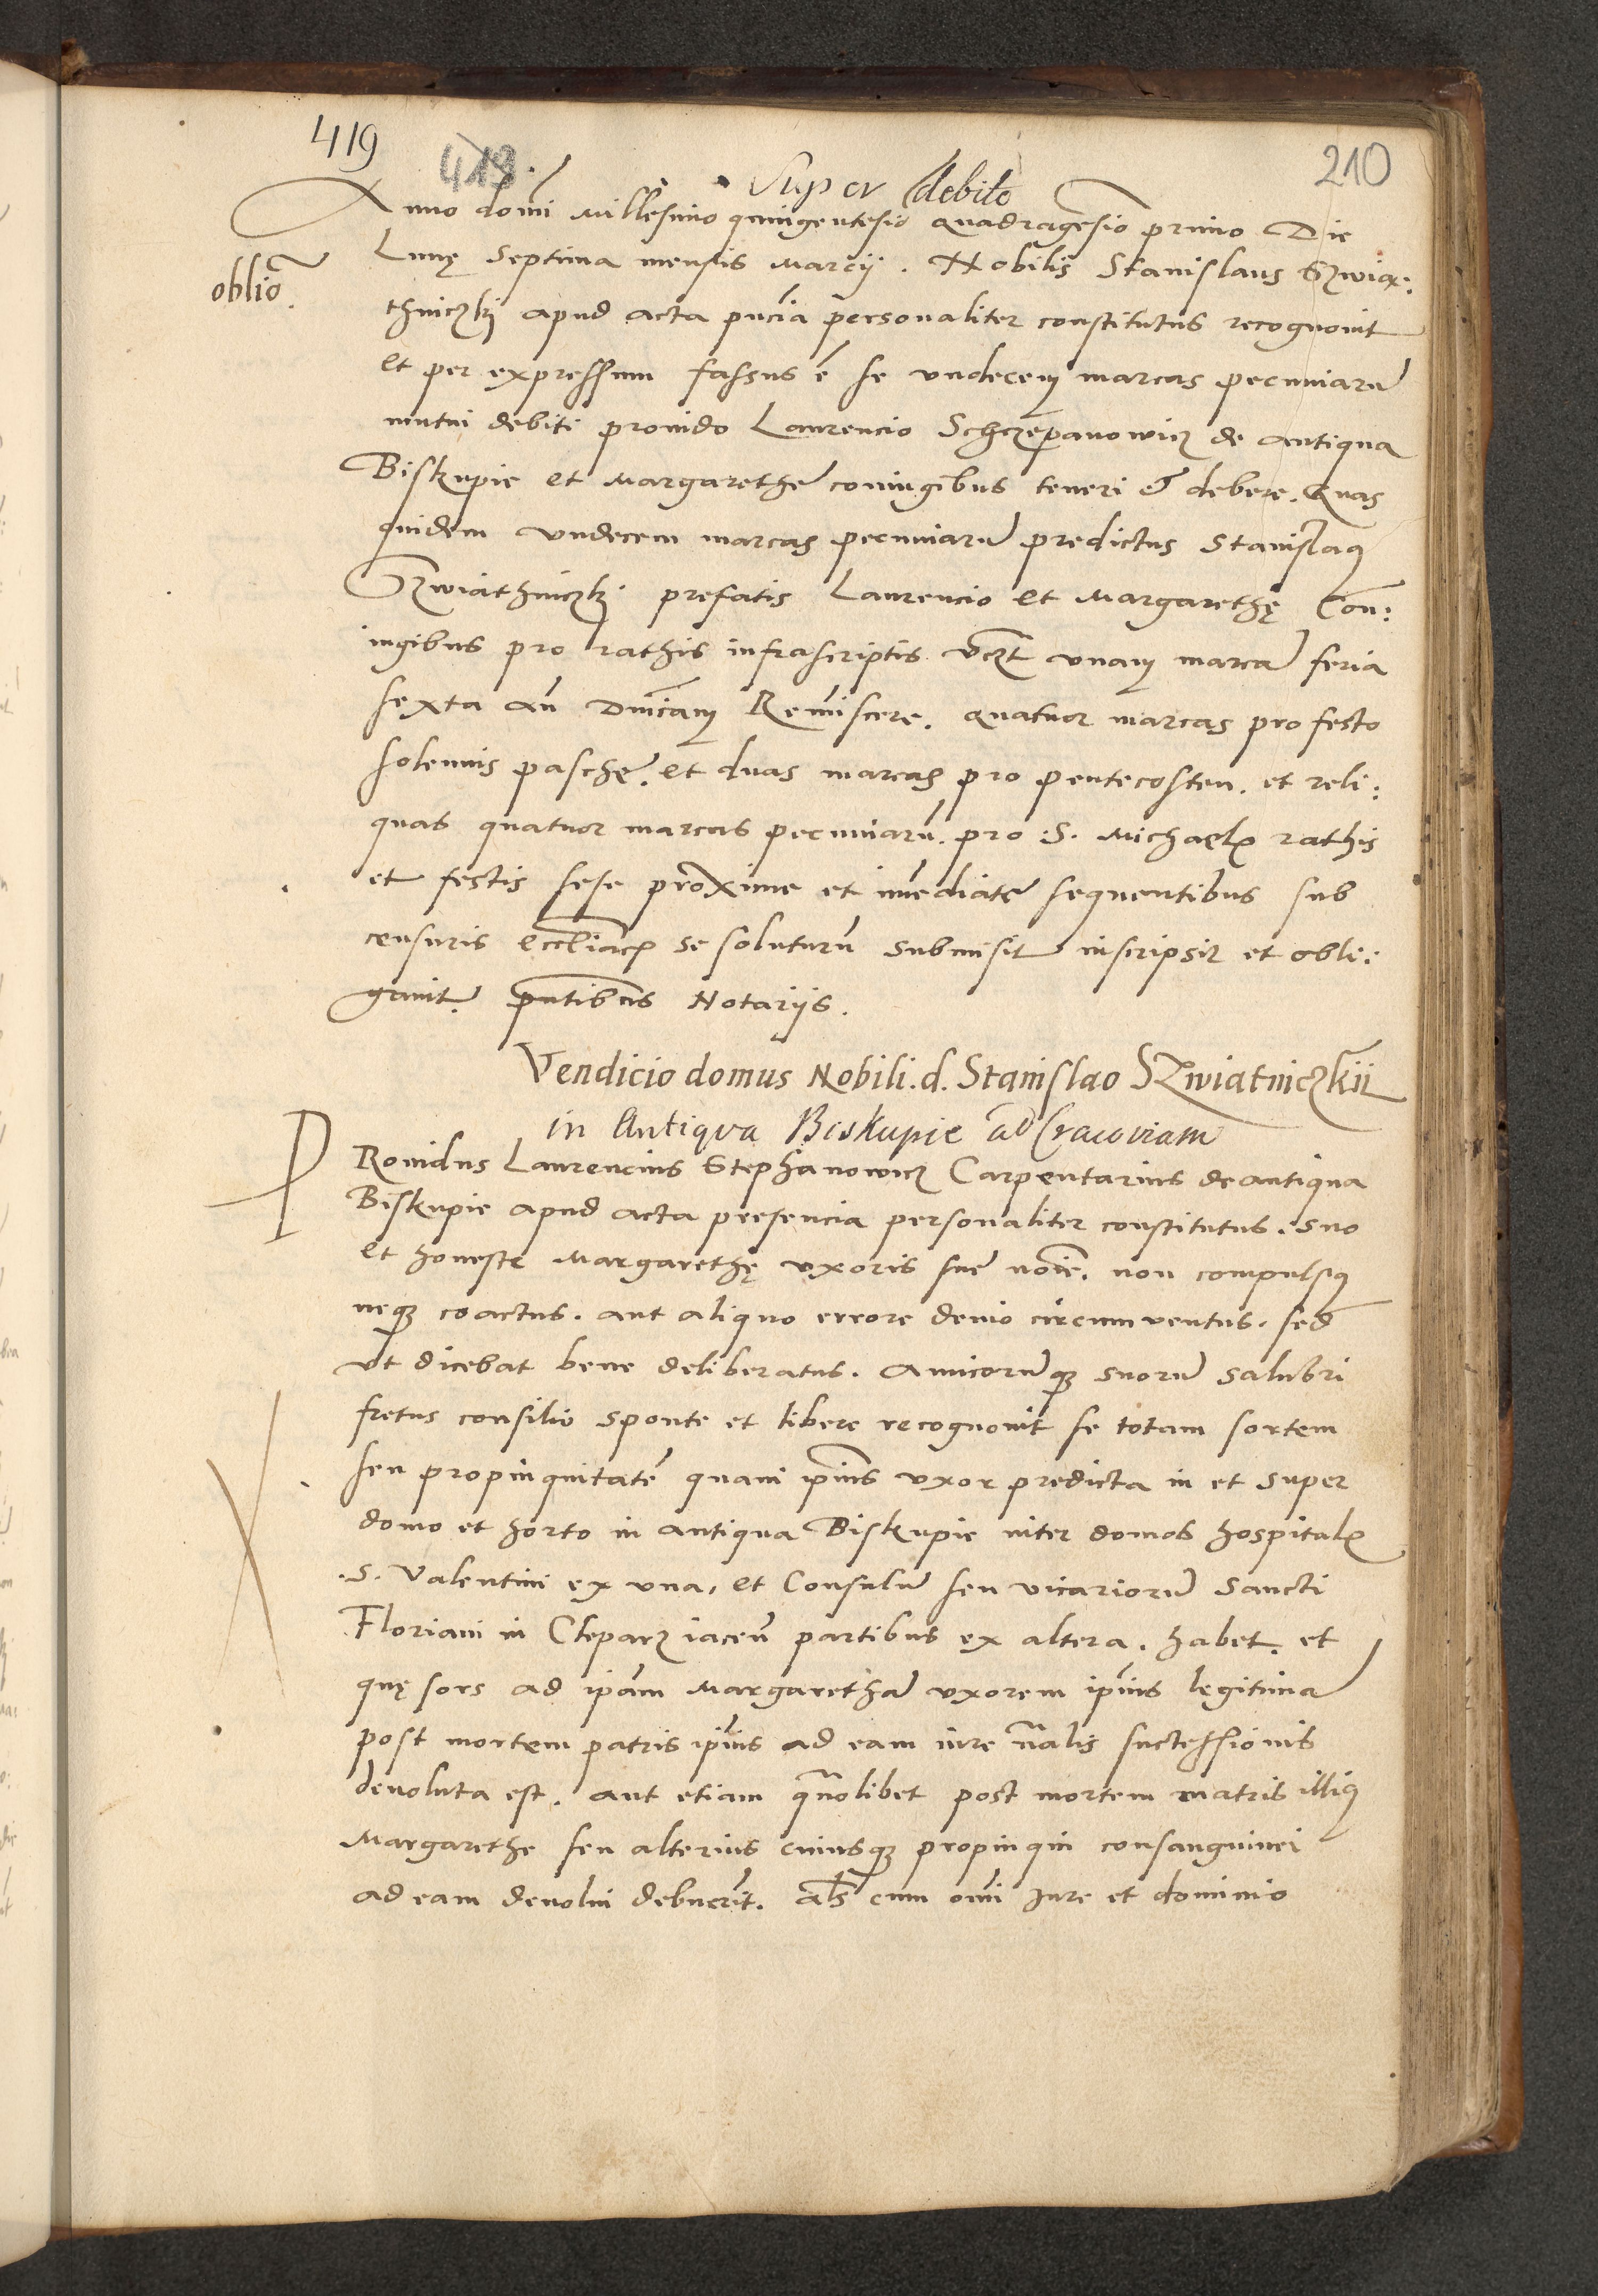 419
418.
210
Super debito
Anno domi Millesimo quingentesio quadragesio primo Die
Lunę Septima mensis Marcij. Nobilis Stanislaus Szwia:
oblio.
thniczkj apud acta pncia personaliter constitutus recognouit
et per expressum fassus ē se vndecem marcas pecuniarū
mutui debiti prouido Laurencio Schczepanowicz de antiqua
Biskupie et Margarethe coniugibus teneri & debere. Quas
quidem vndecem marcas pecuniarū predictus Stanislaus
Szwiathniczkj prefatis Laurencio et Margarethę Con:
iugibus pro rathis infrascriptis vczt vnam marcā feria
sexta an Dnicam Remiscere. quatuor marcas pro festo
solennis pasche. et duas marcas pro pentecosten. et reli:
quas quatuor marcas pecuniarū. pro .S. Michaelis rathis
et festis sese proxime et imediate sequentibus sub
censuris eccliacis se soluturū submisit inscripsit et obli:
gauit. pntibus Notarijs.
Vendicio domus Nobili. d. Stanislao SZwiatniczkii
in Antiqua Biskupie ad Cracoviam
PRouidus Laurencius Stephanowicz Carpentarius de antiqua
Biskupie apud acta presencia personaliter constitutus. suo
et honeste Margarethę vxoris sue noie. non compulsus
neque coactus. aut aliquo errore deuio circumuentus. sed
vt dicebat bene deliberatus. Amicorūque suorū salubri
fretus consilio sponte et libere recognouit se totam sortem
seu propinquitatē quam ipius vxor predicta in et super
domo et horto in antiqua Biskupie inter domos hospitalis
.S. Valentini ex vna, et Consulū seu vicariorū Sancti
Floriani in Cleparz iaceñ partibus ex altera. habet. et
quę sors ad ipam Margarethā vxorem ipius legitimā
post mortem patris ipius ad eam iure nālis successionis
deuoluta est. aut etiam qñolibet post mortem matris illius
Margarethe seu alterius cuiusque propinqui consanguinei
ad eam deuolui debuerit. als cum omi Jure et dominio